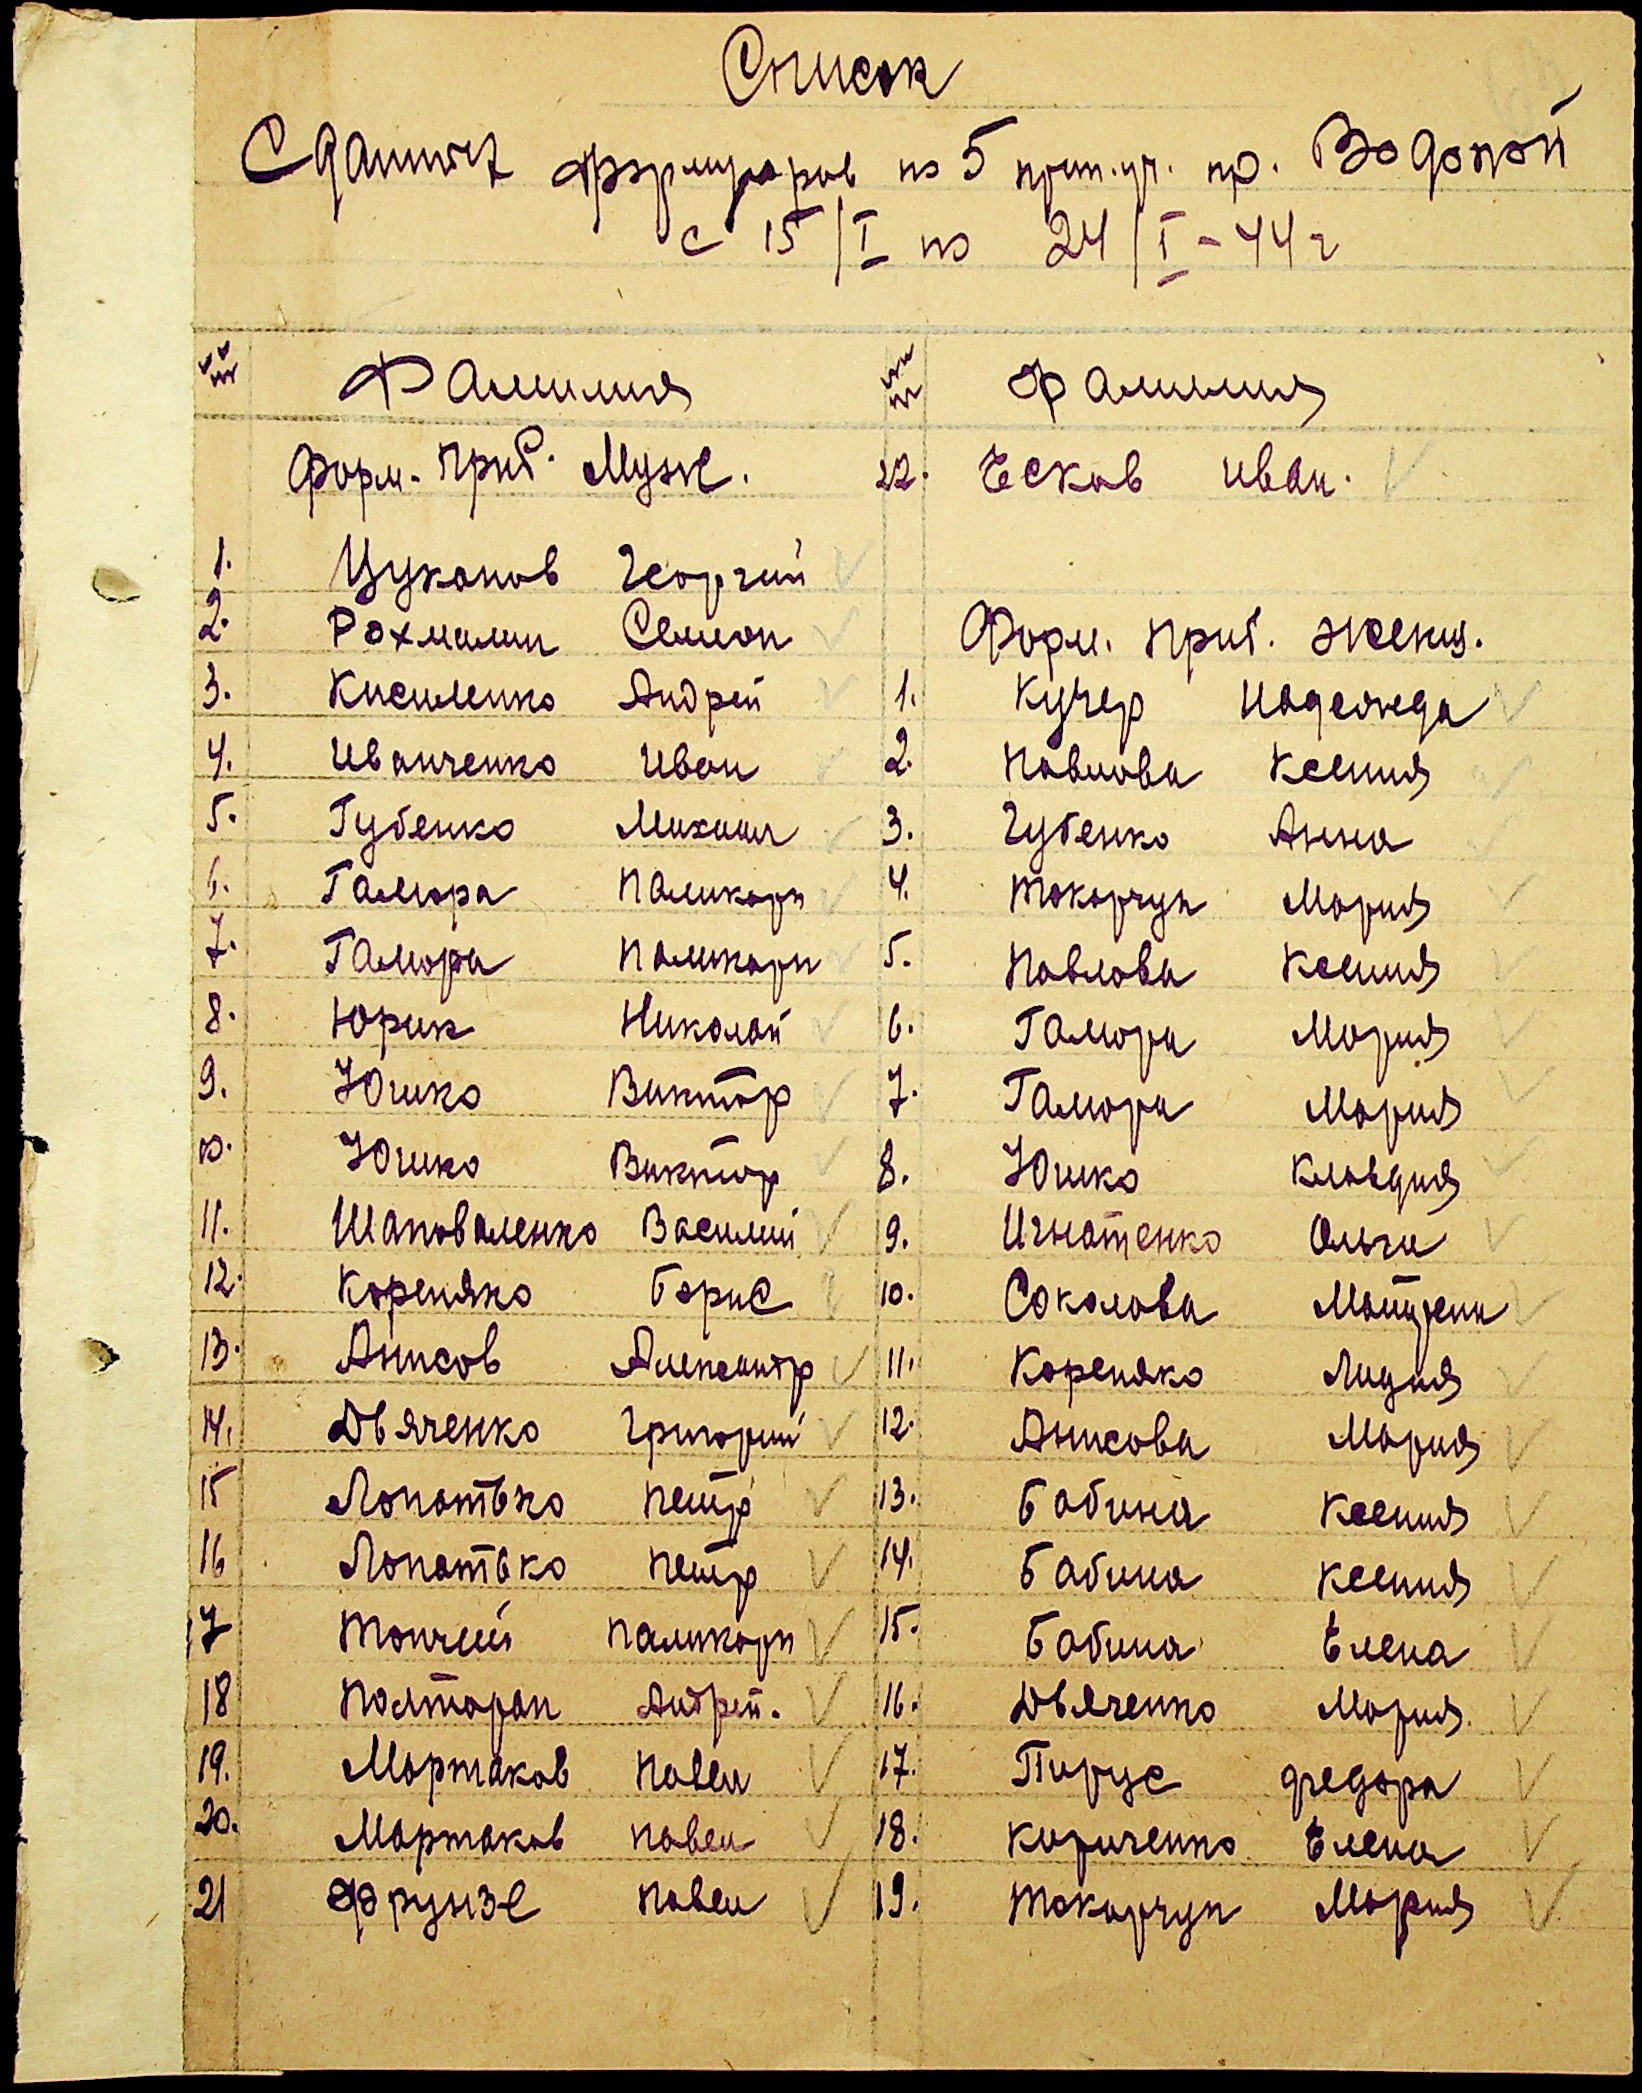 Список
Сданных формуляров по 5 прит. уч. пр. Водопой
с 15/I по 24/I-44 г
№№ Фамилия
Форм. приб. Муж.
1. Цуканов Георгий
2. Рахмалин Семен
3. Кисиленко Андрей
4. Иванченко Иван
5. Губенко Михаил
6. Гамюра Паликарп
7. Гамюра Паликарп
8. Юрик Николай
9. Юшко Виктор
10. Юшко Виктор
11. Шаповаленко Василий
12. Кореняко Борис
13. Анисов Александр
14. Дьяченко Григорий
15 Лопатько Петр
16 Лопатько Петр
17 Паликарп
18 Полторак Андрей.
19. Мартаков Павел
20. Мартаков Павел
21 Фрунзе Павел
№№ Фамилия
22. Есков Иван.
Форм. приб. женщ.
1. Кучер Надежда
2. Павлова Ксения
3. Губенко Анна
4. Токарчук Мария
5. Павлова Ксения
6. Гамюра Мария
7. Гамюра Мария
8. Юшко Клавдия
9. Игнатенко Ольга
10. Соколова Матрена
11. Кореняко Лидия
12. Анисова Мария
13. Бабина Ксения
14. Бабина Ксения
15. Бабина Елена
16. Дьяченко Мария
17. Пирус Федора
18. Кириченко Елена
19. Токарчук Мария